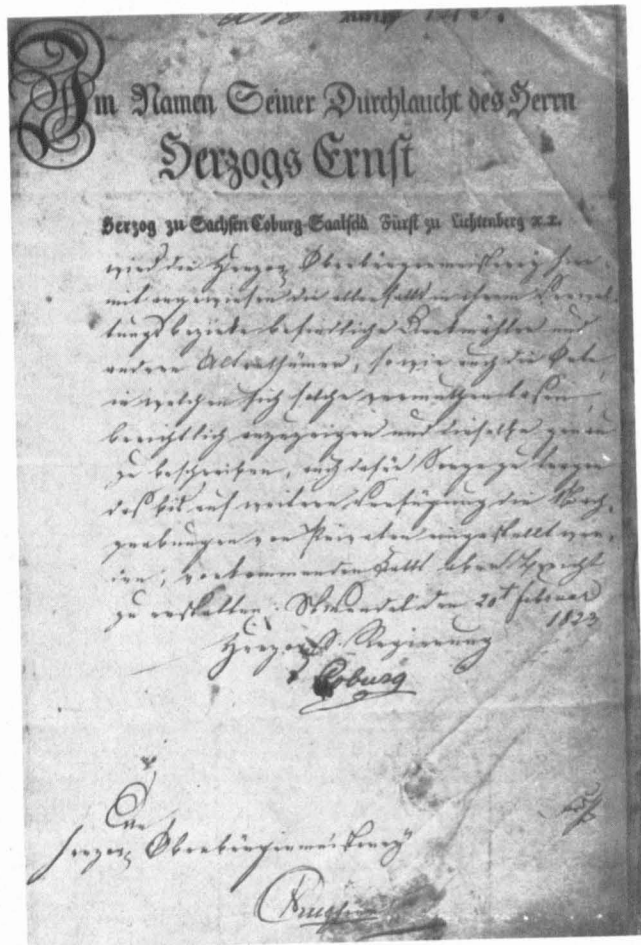 Im Namen Seiner Durchlaucht des Herrn
Herzogs Ernst
Herzog zu Sachsen Coburg-Saalfeld Fürst zu Lichtenberg x.x.
wird die Herzogl. Oberbürgermeisterey hier-
mit angewiesen die allenfalls in ihrem Verwal-
tungsbezirke befindliche Denkmähler und
andern Alterthümer, sowie auch die Orte,
in welchen sich solche vermuthen lassen,
berichtlich anzuzeigen und dieselbe genau
zu beschreiben, auch dafür Sorge zu tragen
daß bis auf weitere Verfügung die Nach-
grabungen von Privaten eingestellt wer-
den, vorkommenden Falls aber Bericht
zu erstatten. St. Wendel den 20t Februar
1823
Herzogl. S. Regierung
Coburg
An
Herzogl. Oberbürgermeisterey